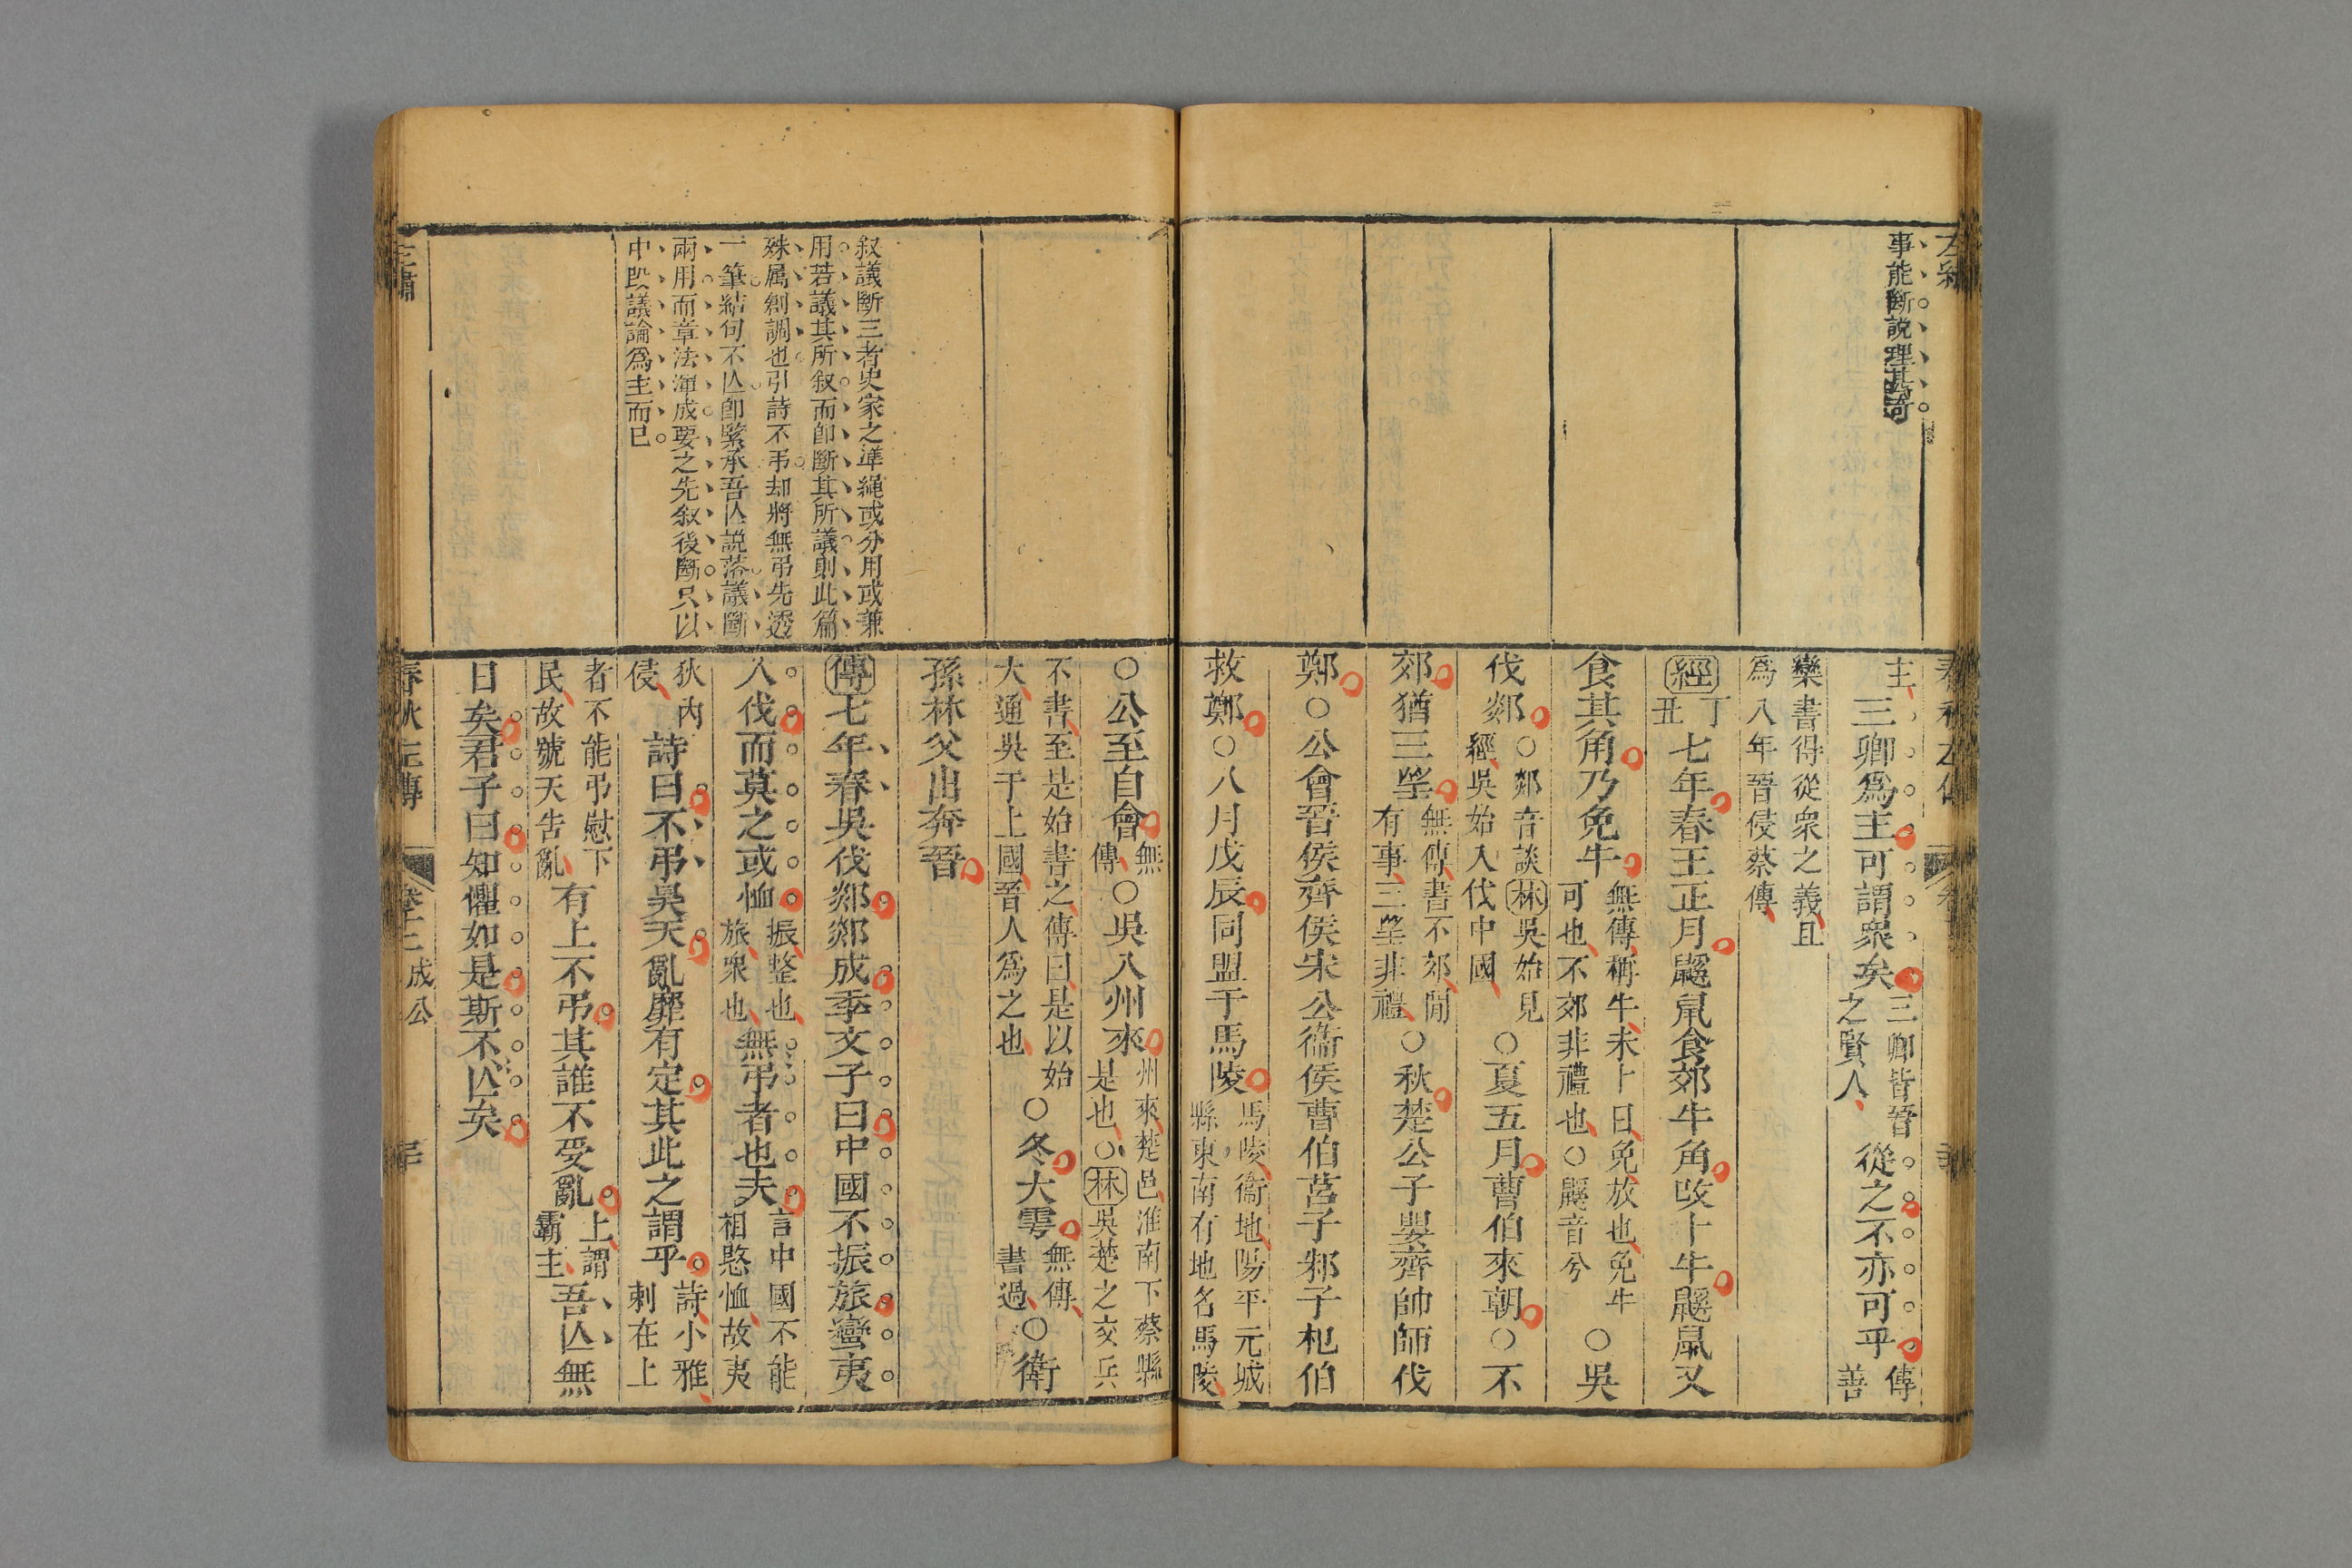 事能斷說理甚奇
主三卿爲主可謂衆矣三卿皆晉之賢人從之不亦可乎傳善
欒書得從衆之義且爲八年晉侵蔡傳
經丁丑七年春王正月鼷鼠食郊牛角改卜牛鼷鼠又
食其角乃免牛無傳稱牛未卜日免放也免牛可也不郊非禮也○鼷音兮○吳
伐郯○郯音談林吳始見經吳始入伐中國○夏五月曹伯來朝○不
郊猶三望無傳書不郊閒有事三望非禮○秋楚公子嬰齊帥師伐
鄭○公會晉侯齊侯宋公衞侯曹伯莒子邾子杞伯
救鄭○八月戊辰同盟于馬陵馬陵衞地陽平元城縣東南有地名馬陵
○公至自會無傳○吳入州來州來楚邑淮南下蔡縣是也○林吳楚之交兵
不書至是始書之傳曰是以始大通吳于上國晉人爲之也○冬大雩無傳書過○衛
孫林父出奔晉
叙議斷三者史家之準繩或分用或兼
用若議其所叙而卽斷其所議則此篇
殊屬創調也引詩不弔却將無弔先透
一筆結句不亾卽緊承吾亾說落議斷
兩用而章法渾成要之先叙後斷只以
中段議論爲主而已
傳七年春吳伐郯郯成季文子曰中國不振旅蠻夷
入伐而莫之或恤振整也旅衆也無弔者也夫言中國不能相愍恤故夷
狄內侵詩曰不弔昊天亂靡有定其此之謂乎詩小雅刺在上
者不能弔慰下民故號天告亂有上不弔其誰不受亂上謂霸主吾亾無
日矣君子曰知懼如是斯不亾矣
春秋左傳 卷十二 成公